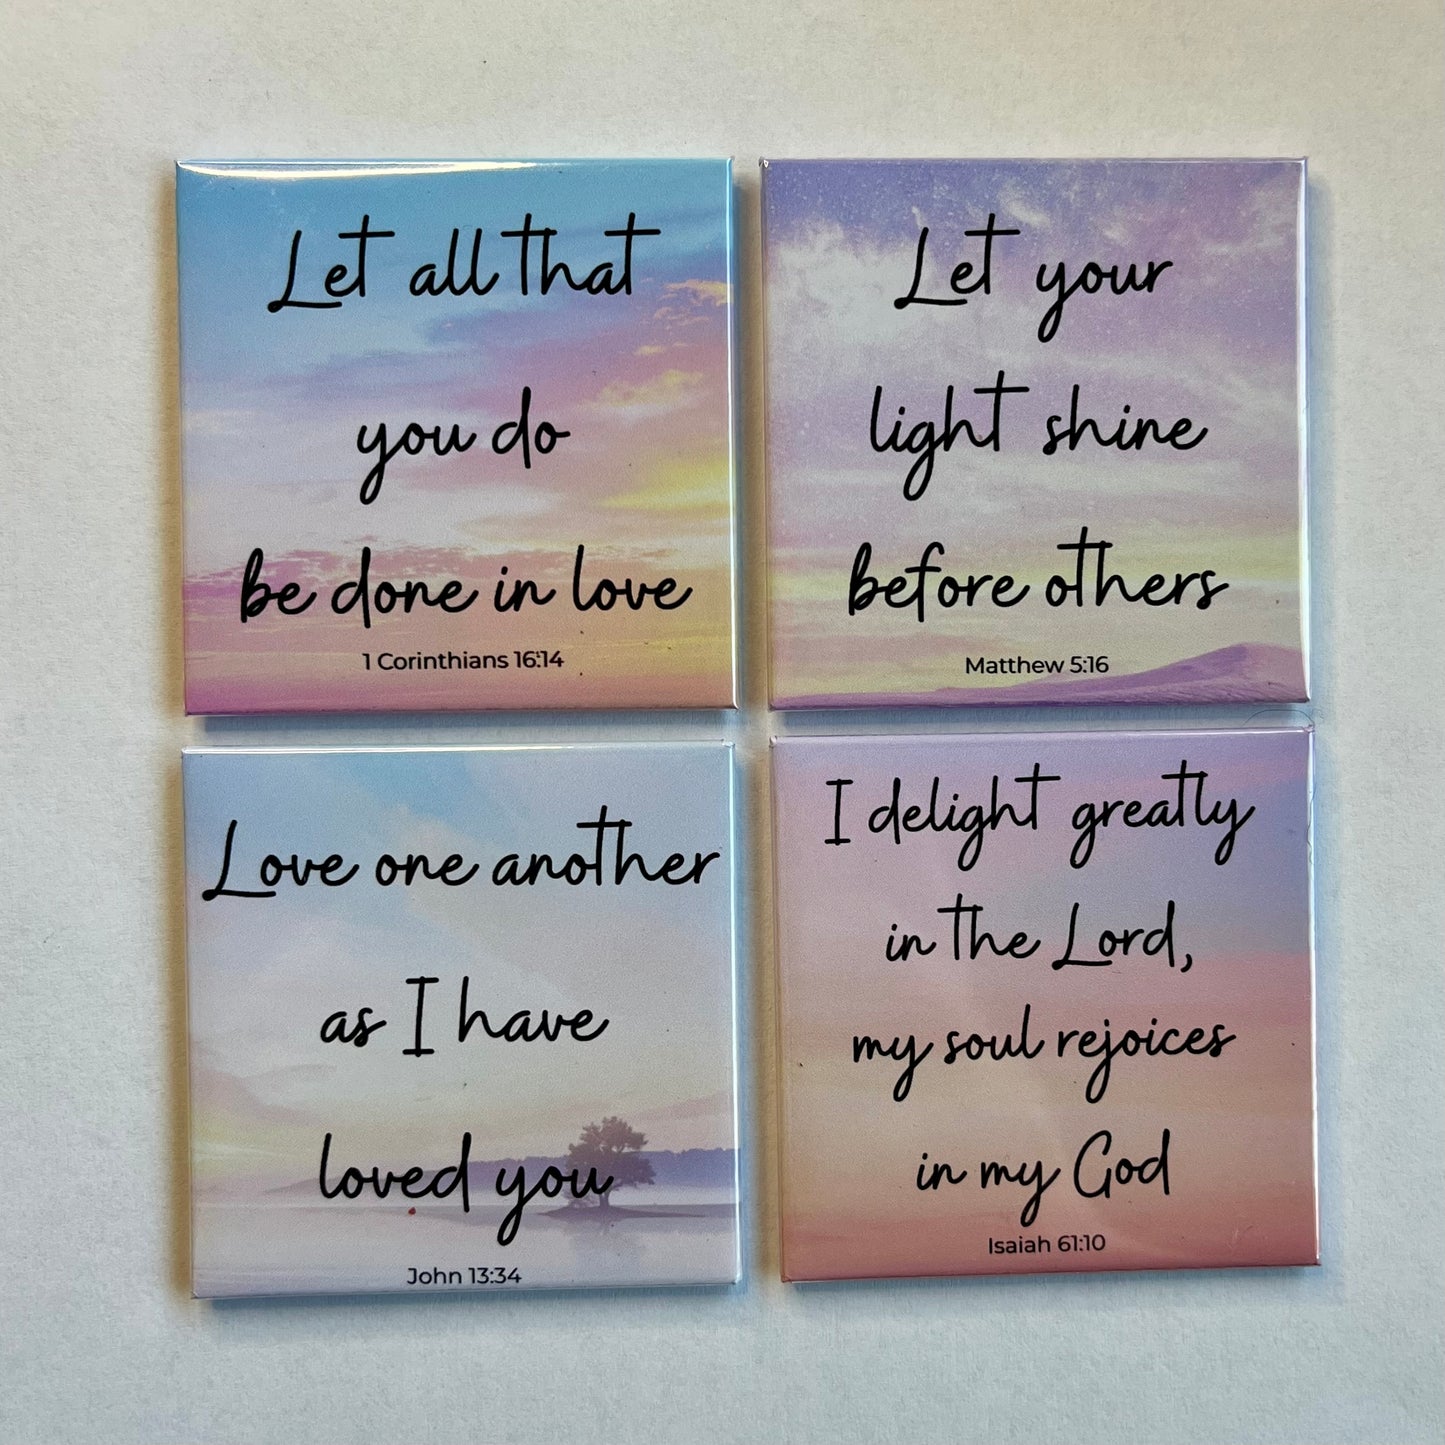 Let all that
you do
be done in love
1 Corinthians 16:14
Let your
light shine
before others
Matthew 5:16
Love one another
as I have
loved you
John 13:34
I delight greatly
in the Lord,
my soul rejoices
in my God
Isaiah 61:10